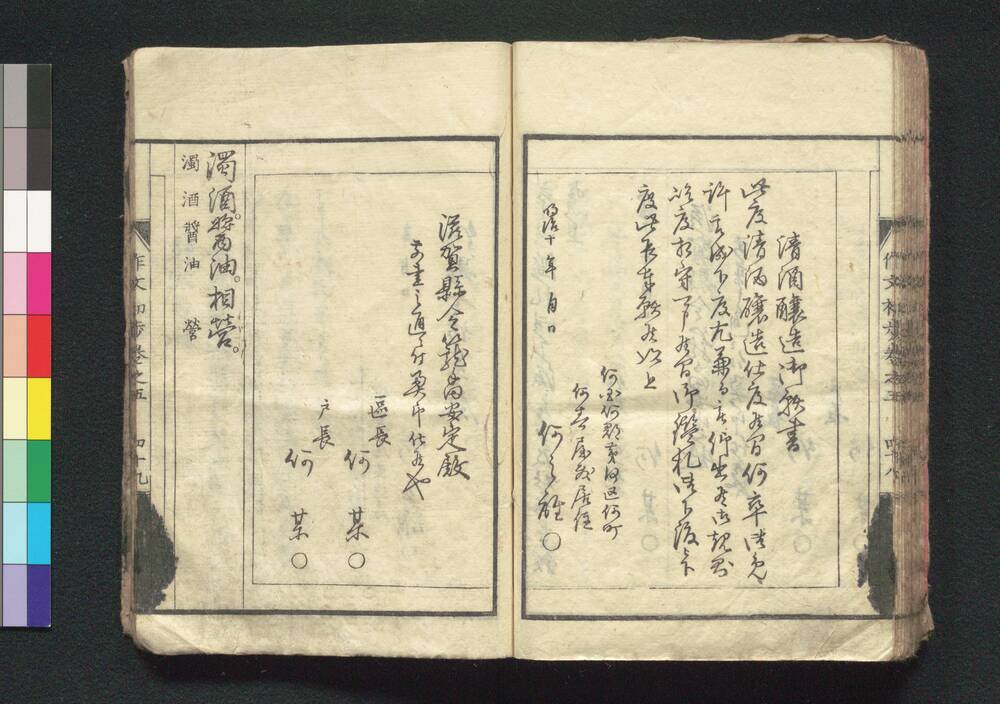 清酒醸造御願書
此度清酒醸造仕度候間何卒御免
許被成下度尤兼而被仰出候御規則
堅度相守可申候間御鑑札御下渡被下
度此段奉願候以上
明治十年 月日
何国何郡第何区何町
何番屋敷居住
何之誰〇
滋賀縣令籠手田安定殿
前書之通ニ付奥印仕候也
區長 何 某〇
戸長 何 某〇
濁酒。醤油。相營。
濁酒醤油 營
作文初歩卷之五 四十八
作文初歩卷之五 四十九